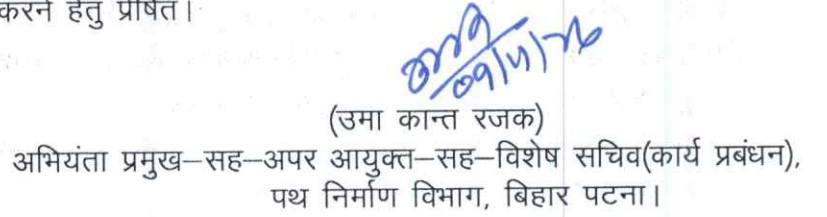 करने हेतु प्रेषित।
(उमा कान्त रजक)
अभियंता प्रमुख–सह–अपर आयुक्त–सह–विशेष सचिव(कार्य प्रबंधन),
पथ निर्माण विभाग, बिहार पटना।